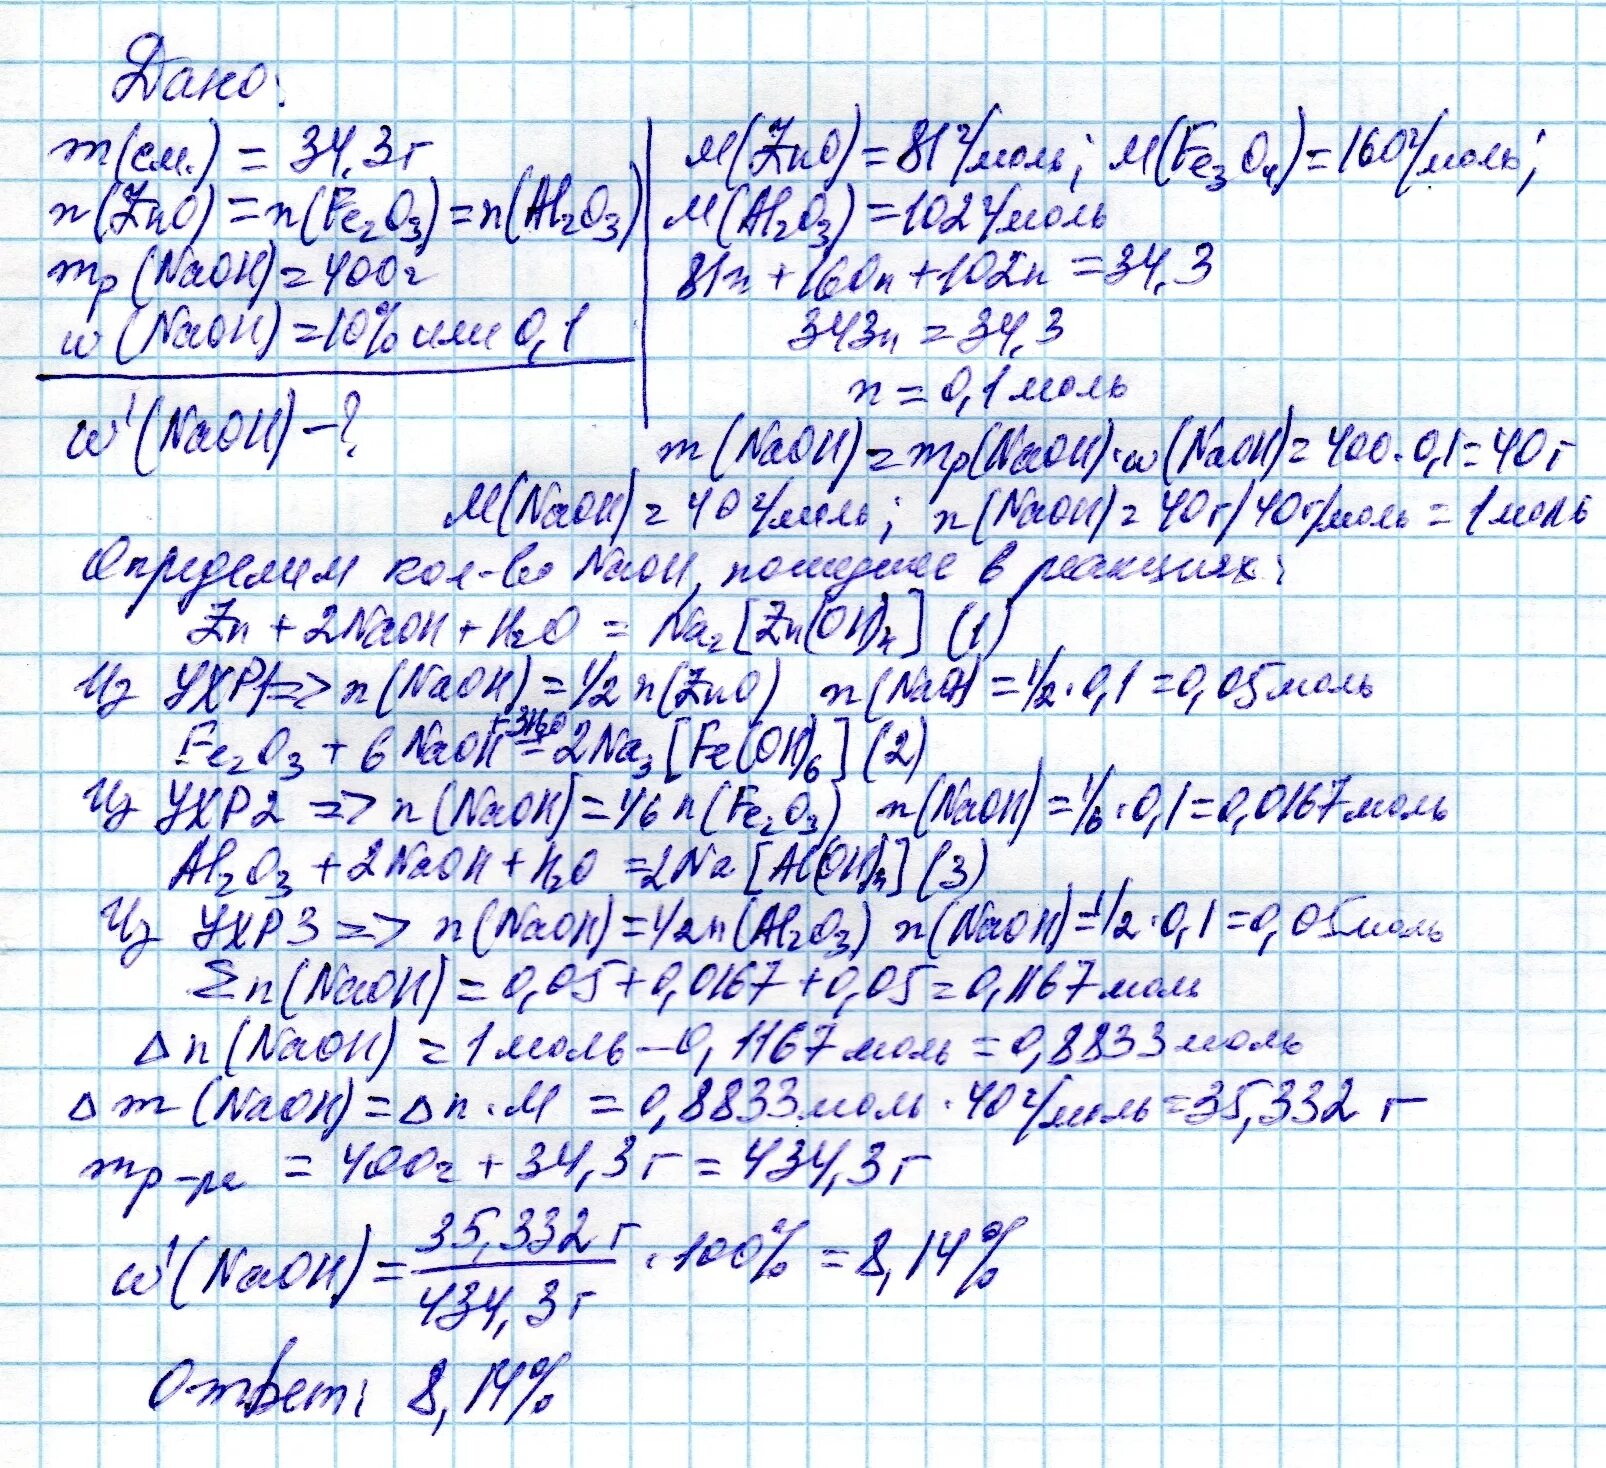 Дано:
m(см.) = 34,3г
n(ZnO) = n(Fe₂O₃) = n(Al₂O₃)
mр(NaOH) = 400г
w(NaOH) = 10% или 0,1
w'(NaOH) - ?
M(ZnO) = 81г/моль; M(Fe₃O₄) = 160г/моль;
M(Al₂O₃) = 102г/моль
81n + 160n + 102n = 34,3
343n = 34,3
n = 0,1 моль
m(NaOH) = mр(NaOH)·w(NaOH) = 400·0,1 = 40г
M(NaOH) = 40г/моль; n(NaOH) = 40г/40г/моль = 1моль
Определим кол-во NaOH, пошедшее в реакциях:
Zn + 2NaOH + H₂O = Na₂[Zn(OH)₄] (1)
Из УХР1 => n(NaOH) = 1/2 n(ZnO) n(NaOH) = 1/2·0,1 = 0,05моль
Fe₂O₃ + 6NaOH +3H₂O = 2Na₃[Fe(OH)₆] (2)
Из УХР2 => n(NaOH) = 1/6 n(Fe₂O₃) n(NaOH) = 1/6·0,1 = 0,0167моль
Al₂O₃ + 2NaOH + H₂O = 2Na[Al(OH)₄] (3)
Из УХР3 => n(NaOH) = 1/2n(Al₂O₃) n(NaOH) = 1/2·0,1 = 0,05моль
Σn(NaOH) = 0,05 + 0,0167 + 0,05 = 0,1167моль
Δn(NaOH) = 1моль - 0,1167моль = 0,8833моль
Δm(NaOH) = Δn·M = 0,8833моль·40г/моль = 35,332 г
mр-ра = 400г + 34,3г = 434,3г
w'(NaOH) = 35,332г / 434,3г · 100% = 8,14%
Ответ: 8,14%